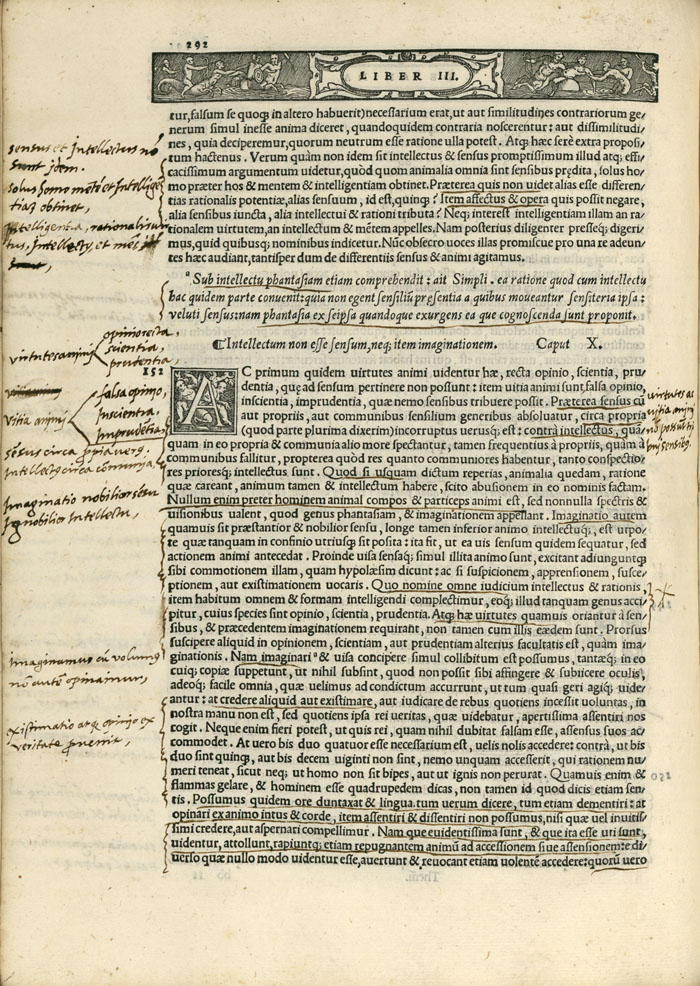 292
LIBER III.
tur, falsum se quoq; in altero habuerit) necessarium erat, ut aut similitudines contrariorum ge-
nerum simul inesse anima diceret, quandoquidem contraria noscerentur: aut dissimilitudi-
nes, quia deciperemur, quorum neutrum esse ratione ulla potest. Atq; hæc serè extra proposi-
tum hactenus. Verum quàm non idem sit intellectus & sensus promptissimum illud atq; effi-
cacissimum argumentum uidetur, quòd quom animalia omnia sint sensibus prędita, solus ho-
mo præter hos & mentem & intelligentiam obtinet. Præterea quis non uidet alias esse differen-
tias rationalis potentiæ, alias sensuum, id est, quinq;? Item affectus & opera quis possit negare,
alia sensibus iuncta, alia intellectui & rationi tributa? Neq; interest intelligentiam illam an ra-
tionalem uirtutem, an intellectum & mẽtem appelles. Nam posterius diligenter presseq; digeri-
mus, quid quibusq; nominibus indicetur. Nũc obsecro uoces illas promiscue pro una re adeun-
tes hæc audiant, tantisper dum de differentiis sensus & animi agitamus.
ᵃ Sub intellectu phantasiam etiam comprehendit: ait Simpli. ea ratione quod cum intellectu
hac quidem parte conuenit: quia non egent sensiliũ presentia a quibus moueantur sensiteria ipsa:
veluti sensus: nam phantasia ex seipsa quandoque exurgens ea que cognoscenda sunt proponit.
¶ Intellectum non esse sensum, neq; item imaginationem. Caput X.
AC primum quidem uirtutes animi uidentur hæ, recta opinio, scientia, pru-
dentia, quę ad sensum pertinere non possunt: item uitia animi sunt, falsa opinio,
inscientia, imprudentia, quæ nemo sensibus tribuere possit. Præterea sensus cũ
aut propriis, aut communibus sensilium generibus absoluatur, circa propria
(quod parte plurima dixerim) incorruptus uerusq; est: contrà intellectus, quã-
quam in eo propria & communia alio more spectantur, tamen frequentius à propriis, quàm à
communibus fallitur, propterea quòd res quanto communiores habentur, tanto conspectio-
res prioresq; intellectus sunt. Quod si usquam dictum reperias, animalia quędam, ratione
quæ careant, animum tamen & intellectum habere, scito abusionem in eo nominis factam.
Nullum enim preter hominem animal compos & particeps animi est, sed nonnulla spectris &
uisionibus ualent, quod genus phantasiam, & imaginationem appellant. Imaginatio autem
quamuis sit præstantior & nobilior sensu, longe tamen inferior animo intellectuq;, est utpo-
te quæ tanquam in confinio utriusq; sit posita: ita fit, ut ea uis sensum quidem sequatur, sed
actionem animi antecedat. Proinde uisa sensaq; simul illita animo sunt, excitant adiunguntq;
sibi commotionem illam, quam hypolæsim dicunt: ac si suspicionem, apprensionem, susce-
ptionem, aut existimationem uocaris. Quo nomine omne iudicium intellectus & rationis,
item habitum omnem & formam intelligendi complectimur, eoq; illud tanquam genus acci-
pitur, cuius species sint opinio, scientia, prudentia. Atq; hæ uirtutes quamuis oriantur à sen-
sibus, & præcedentem imaginationem requirant, non tamen cum illis eædem sunt. Prorsus
suscipere aliquid in opinionem, scientiam, aut prudentiam alterius facultatis est, quàm ima-
ginationis. Nam imaginari ᵃ & uisa concipere simul collibitum est possumus, tantæq; in eo
cuiq; copiæ suppetunt, ut nihil subsint, quod non possit sibi affingere & subiicere oculis,
adeoq; facile omnia, quæ uelimus ad condictum accurrunt, ut tum quasi geri agiq; uide-
antur: at credere aliquid aut existimare, aut iudicare de rebus quotiens incessit uoluntas, in
nostra manu non est, sed quotiens ipsa rei ueritas, quæ uidebatur, apertissima assentiri nos
cogit. Neque enim fieri potest, ut quis rei, quam nihil dubitat falsam esse, assensus suos ac-
commodet. At uero bis duo quatuor esse necessarium est, uelis nolis accedere: contrà, ut bis
duo sint quinq;, aut bis decem uiginti non sint, nemo unquam accesserit, qui rationem nu-
meri teneat, sicut neq; ut homo non sit bipes, aut ut ignis non perurat. Quamuis enim &
flammas gelare, & hominem esse quadrupedem dicas, non tamen id quod dicis etiam sen-
tis. Possumus quidem ore duntaxat & lingua tum uerum dicere, tum etiam dementiri: at
opinari ex animo intus & corde, item assentiri & dissentiri non possumus, nisi quæ uel inuitis-
simi credere, aut aspernari compellimur. Nam que euidentissima sunt, & que ita esse uti sunt,
uidentur, attollunt, rapiuntq; etiam repugnantem animũ ad accessionem siue assensionem: è di-
uerso quæ nullo modo uidentur esse, auertunt & reuocant etiam uolentẽ accedere: quorũ uero
sensus et Intellectus nõ
sunt idem.
solus homo mẽtẽ et Intellige-
tiaʒ obtinet,
Intelligentia, rationalis uir-
tus, Intellectꝯ, et mẽs
virtutes animi
opinio recta,
scientia,
prudentia,
152
vitia animi
falsa opinio,
Inscientia,
Imprudentia
sẽsus circa ꝓpia verꝯ.
Intellectꝯ circa communia,
Imaginatio nobilior sẽsu
Ignobilior Intellectu,
virtutes ac
vitia animj
nõ possũt tri-
bui sensibꝯ.
Imaginamur cũ volumꝯ
nõ autẽ opinamur,
existimatio atqꝫ opinio ex
veritate ꝓuenit,